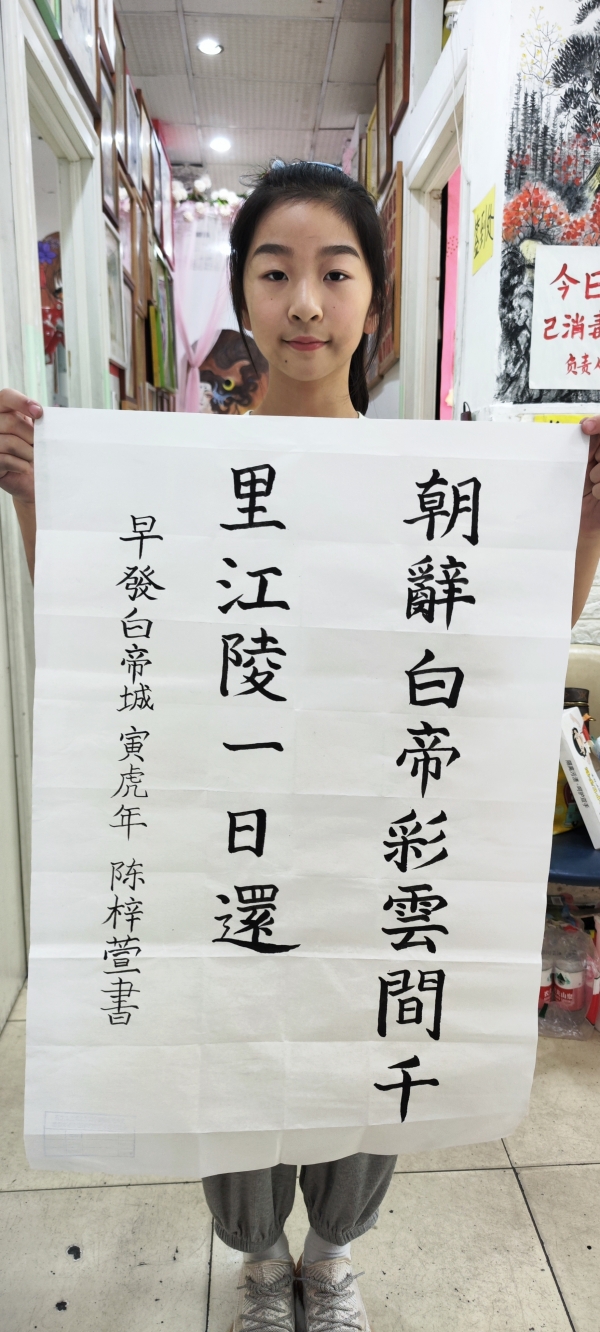 朝辭白帝彩雲間千
里江陵一日還
早發白帝城 寅虎年 陈梓萱書
今日
已消毒
负责人